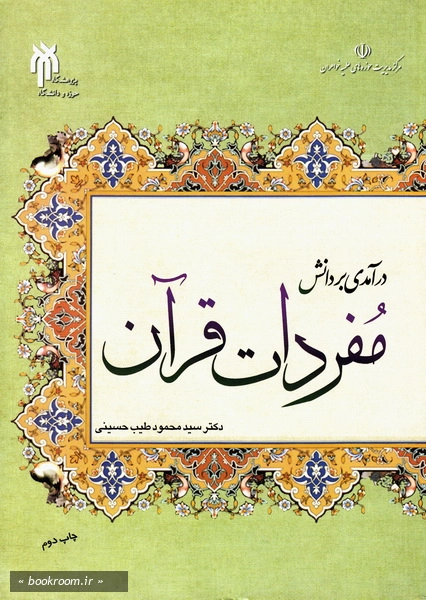 مرکز مدیریت حوزه‌های علمیه خواهران
پژوهشگاه
حوزه و دانشگاه
درآمدی بر دانش
مُفردات قرآن
دکتر سید محمود طیب حسینی
چاپ دوم
« bookroom.ir »